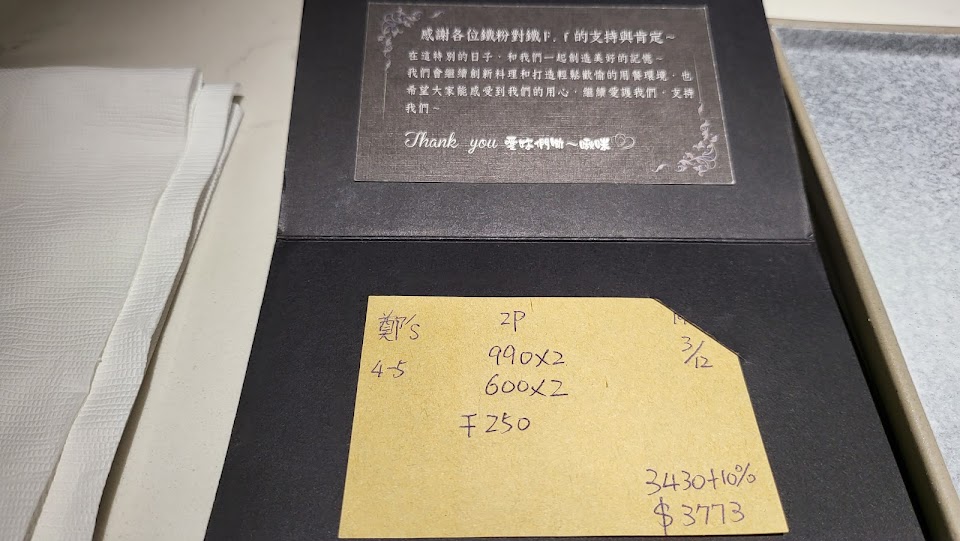 感謝各位鐵粉對鐵P.f的支持與肯定~
在這特別的日子，和我們一起創造美好的記憶~
我們會繼續創新料理和打造輕鬆歡愉的用餐環境，也
希望大家能感受到我們的用心，繼續愛護我們，支持
我們~
Thank you 愛你們呦~啾咪
鄭's 2P
3/12
4-5 990X2
600X2
干250
3430+10%
$3773